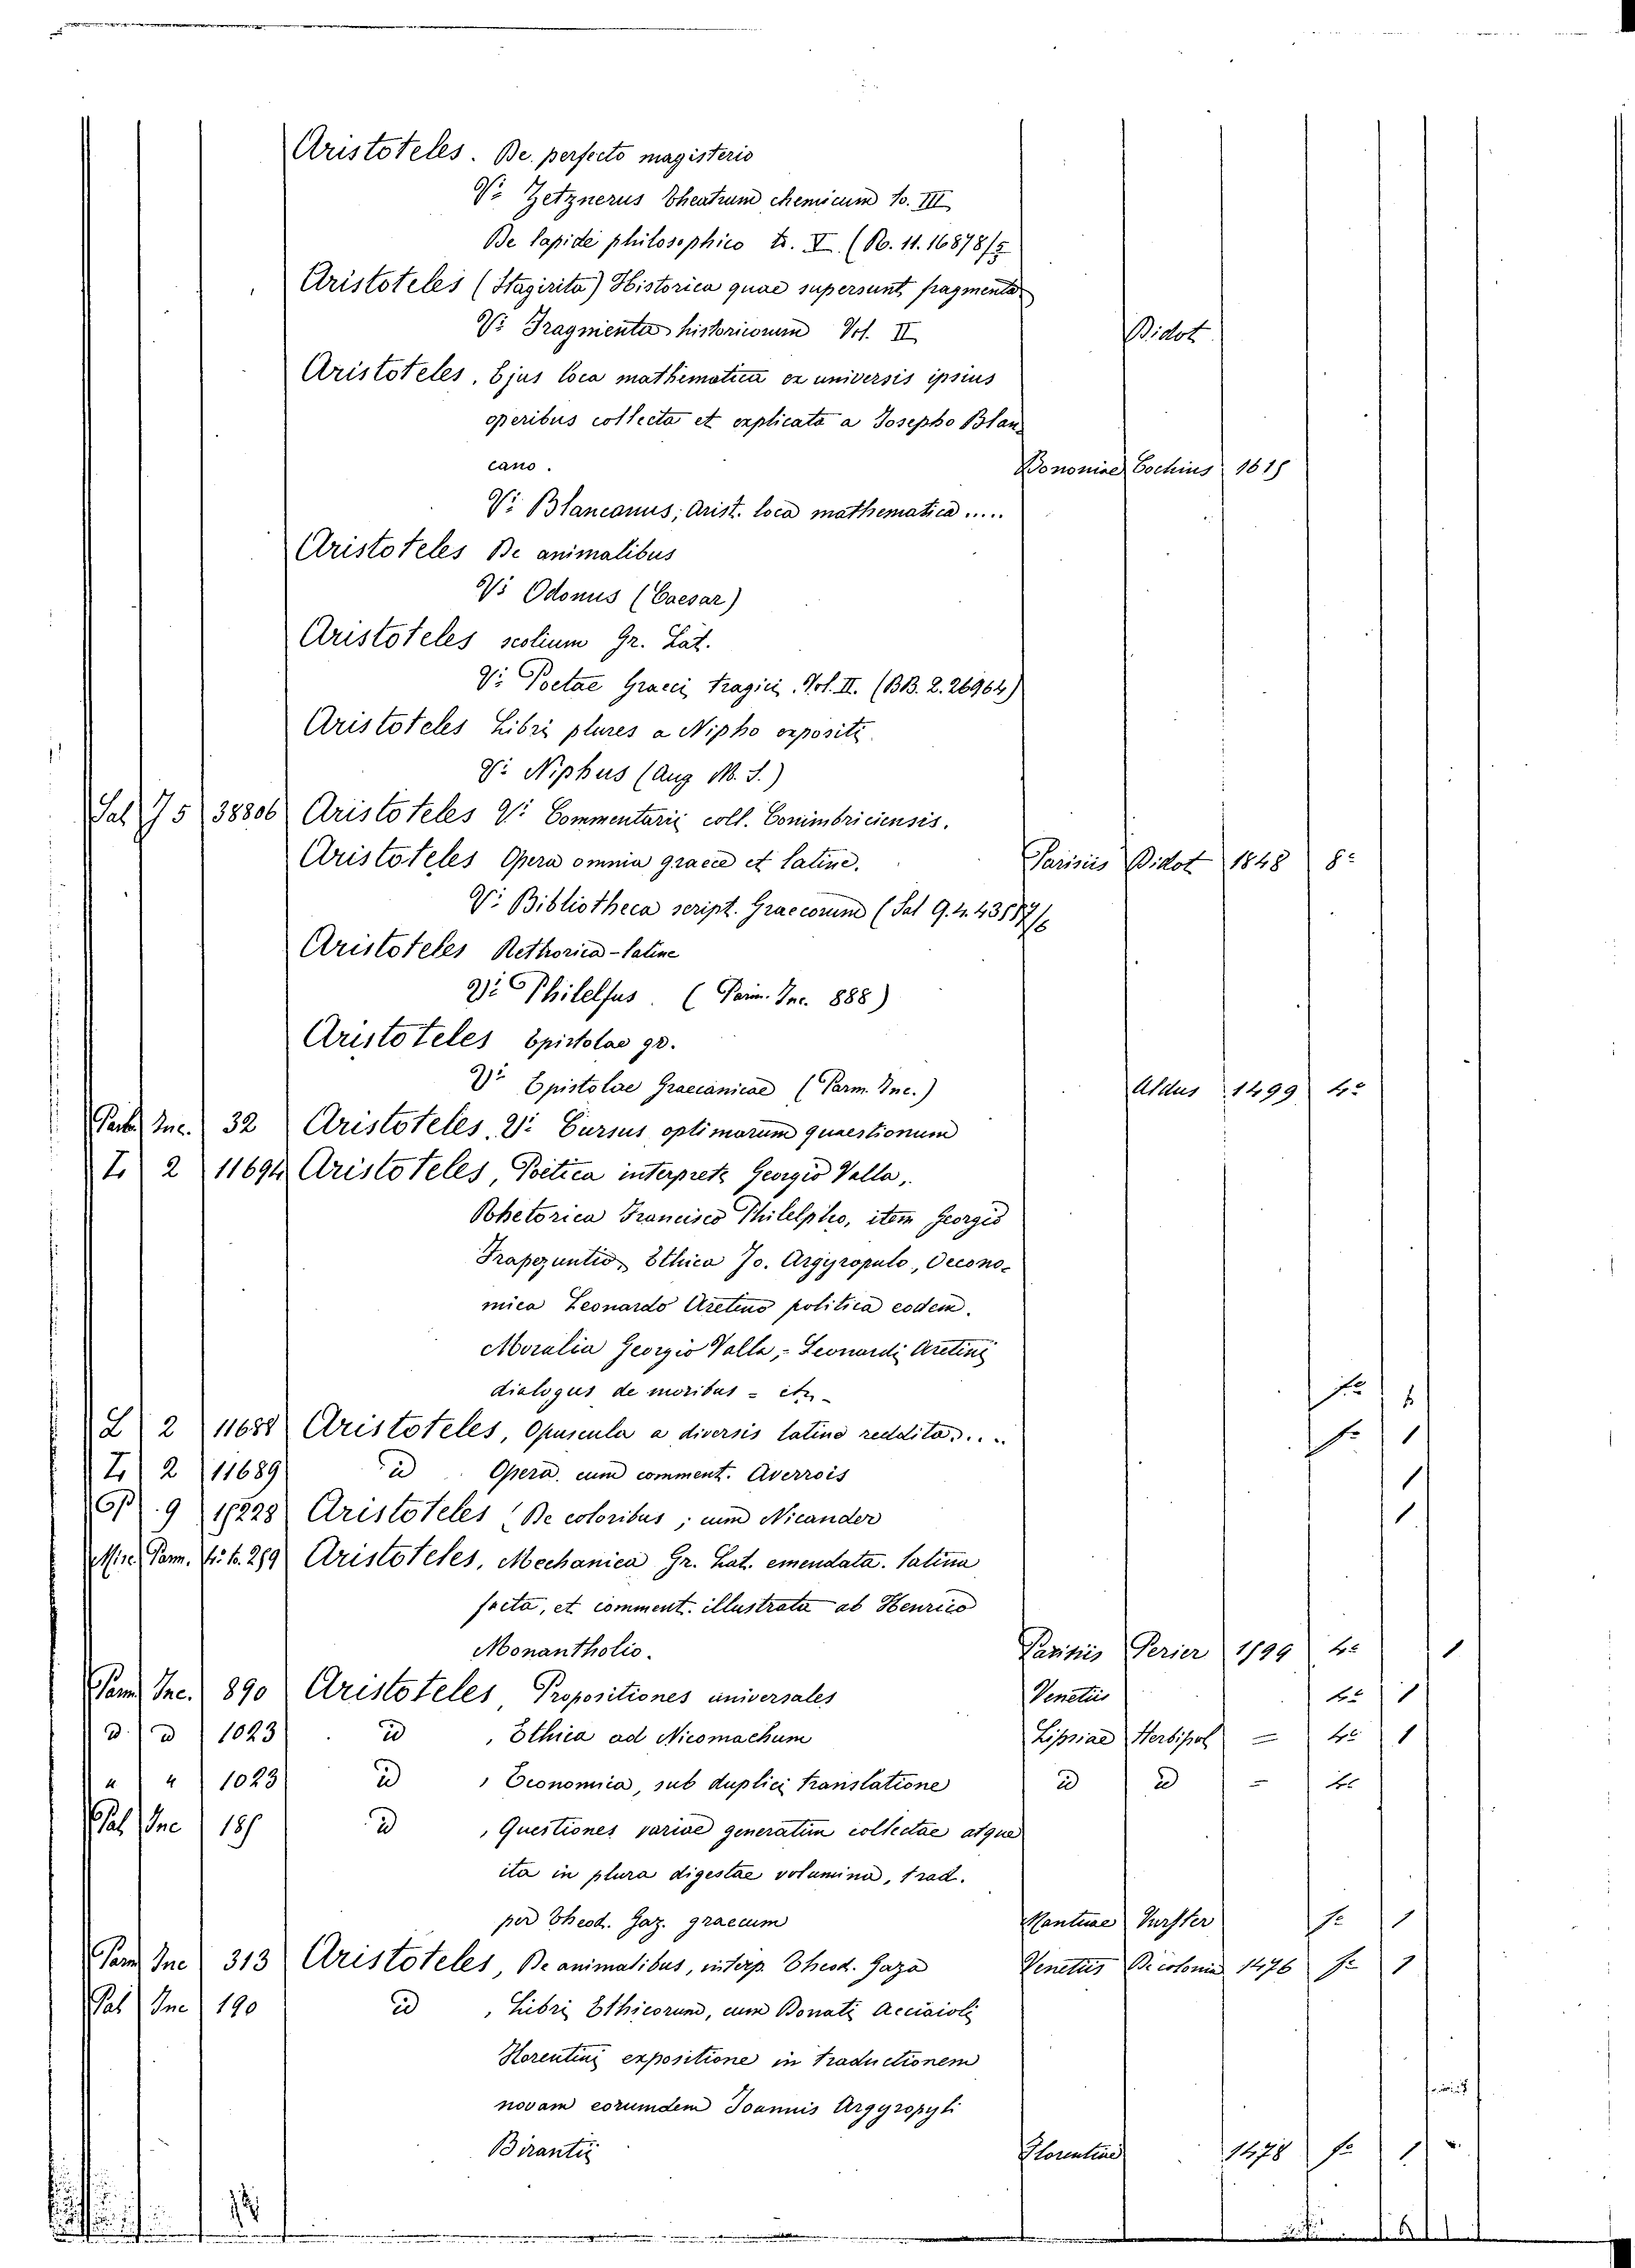 Aristoteles. De perfecto magisterio
Vi Zetznerus Theatrum chemicum to. III
De lapide philosophico to. V. (B. 11. 16878/5
Aristoteles (Stagirita) Historica quae supersunt fragmenta
Vi Fragmenta historicorum Vol. II Didot
Aristoteles, Ejus loca mathematica ex universis ipsius
operibus collecta et explicata a Josepho Blan
cano. Bononiae Cochius 1615
Vi Blancanus, Arist. loca mathematica .....
Aristoteles De animalibus
Vi Odonus (Caesar)
Aristoteles scolium Gr. Lat.
Vi Poetae Graeci tragici. Vol. II. (BB. 2. 26964)
Aristoteles Libri plures a Nipho expositi.
Vi Niphus (Aug M. S.)
Sal J 5 38806 Aristoteles Vi Commentarii coll. Conimbriciensis.
Aristoteles Opera omnia graece et latine. Parisiis Didot 1848 8º
Vi Bibliotheca script. Graecorum (Sal 9. 4.
Aristoteles Rethorica - latine
Vi Philelfus. (Parm. Inc. 888)
Aristoteles Epistolae gr.
Vi Epistolae Graecanicae (Parm. Inc.) Aldus 1499 4º
Inc. 32 Aristoteles. Vi Cursus optimarum quaestionum
2 11694 Aristoteles, Poetica interprete Georgio Valla,
Rhetorica Francisco Philelpho, item Georgio
Trapezuntio, Ethica Jo. Argyropulo, Oecono-
mica Leonardo Aretino politica eodem.
Moralia Georgio Valla, - Leonardi Aretini
dialogus de moribus - etc - fº 1
L 2 11688 Aristoteles, Opuscula a diversis latine reddita.... fº 1
2 11689 id Opera cum comment. Averrois 1
9 Aristoteles De coloribus, cum Nicander 1
Misc. Parm. Aristoteles, Mechanica Gr. Lat. emendata. latina
facta, et comment. illustrata ab Henrico
Monantholio. Parisiis Perier 1599 4º 1
Parm Inc. 890 Aristoteles, Propositiones universales Venetiis 4º 1
id id 1023 id, Ethica ad Nicomachum Lipsiae Herbipol = 4º 1
" " 1023 id, Economica, sub duplici translatione id id = 4º
Pal Inc 185 id, Questiones variae generatim collectae atque
ita in plura digestae volumina, trad.
per Theod. Gaz. graecum Mantuae Vurster fº 1
Parm Inc 313 Aristoteles, De animalibus, interp. Theod. Gaza Venetiis De colonia 1476 fº 1
Pal Inc 190 id, Libri Ethicorum, cum Donati Acciaioli
Florentini expositione in traductionem
novam eorumdem Joannis Argyropyli
Bizantii Florentiae 1478 fº 1